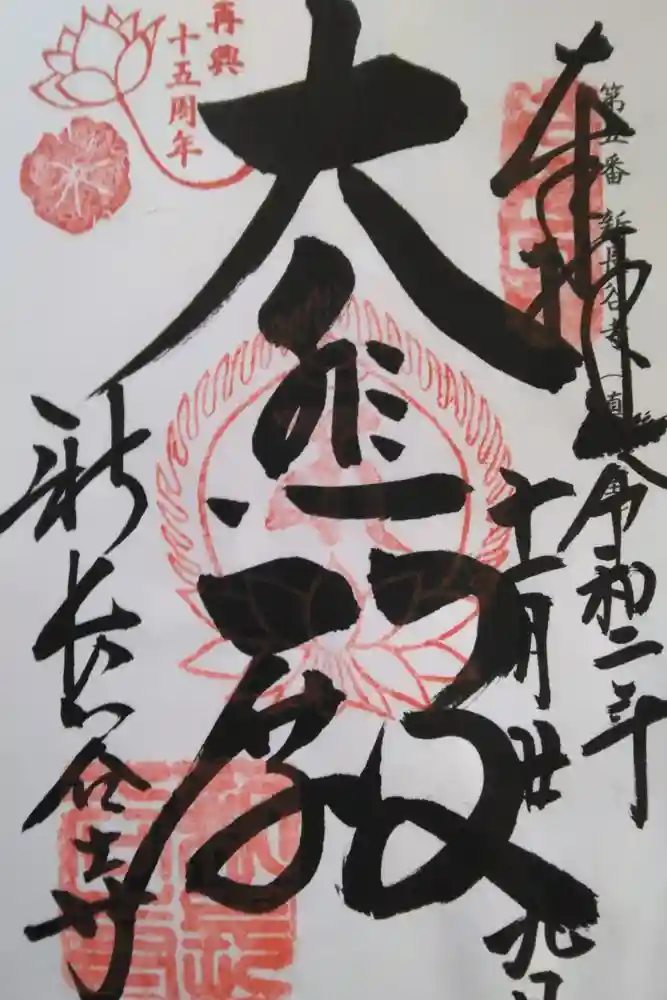 奉拝
第五番 新長谷寺
令和二年
十一月廿九日
大悲殿
新長谷寺
再興
十五周年